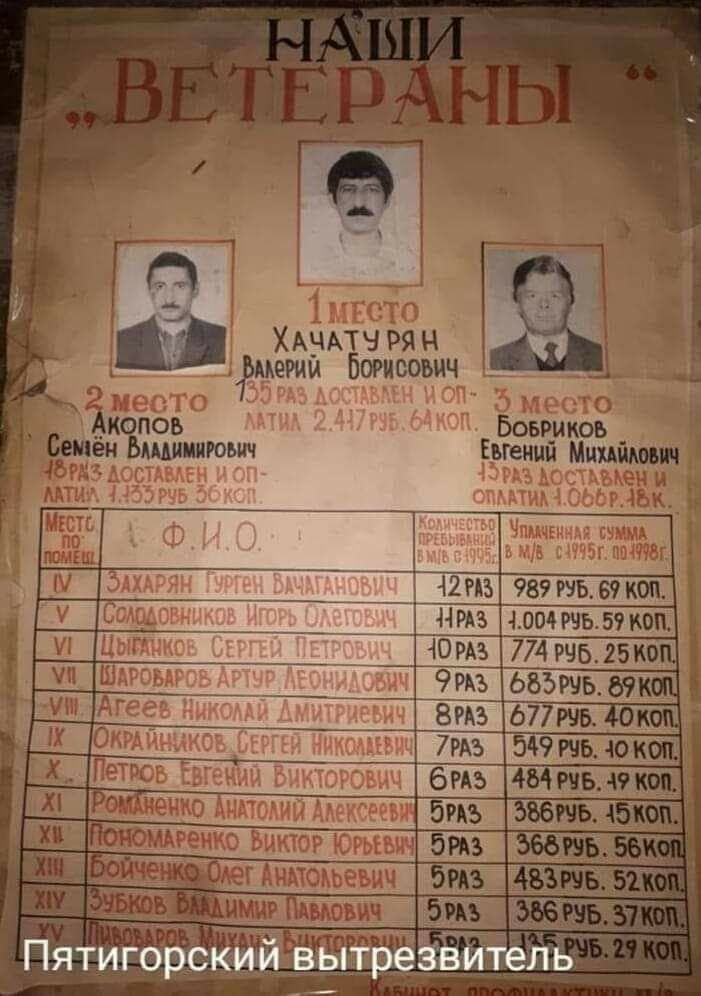 НАШИ
„ВЕТЕРАНЫ“
1 место
ХАЧАТУРЯН
ВАЛЕРИЙ БОРИСОВИЧ
135 РАЗ ДОСТАВЛЕН И ОП-
ЛАТИЛ 2.417 РУБ. 64 КОП.
2 место
АКОПОВ
СЕМЁН ВЛАДИМИРОВИЧ
18 РАЗ ДОСТАВЛЕН И ОП-
ЛАТИЛ 1.133 РУБ 36 КОП.
3 место
БОБРИКОВ
ЕВГЕНИЙ МИХАЙЛОВИЧ
13 РАЗ ДОСТАВЛЕН И
ОПЛАТИЛ 1.066 Р. 18 К.
МЕСТО ПО ПОМЕЩ. Ф.И.О. КОЛИЧЕСТВО ПРЕБЫВАНИЙ В М/В С 1995г. УПЛАЧЕННАЯ СУММА В М/В С 1995г. ПО 1998г.
IV ЗАХАРЯН ГУРГЕН ВАЧАГАНОВИЧ 12 РАЗ 989 РУБ. 69 КОП.
V СОЛОДОВНИКОВ ИГОРЬ ОЛЕГОВИЧ 11 РАЗ 1.004 РУБ. 59 КОП.
VI ЦЫГАНКОВ СЕРГЕЙ ПЕТРОВИЧ 10 РАЗ 774 РУБ. 25 КОП.
VII ШАРОВАРОВ АРТУР ЛЕОНИДОВИЧ 9 РАЗ 683 РУБ. 89 КОП.
VIII АГЕЕВ НИКОЛАЙ ДМИТРИЕВИЧ 8 РАЗ 677 РУБ. 40 КОП.
IX ОКРАЙНИКОВ СЕРГЕЙ НИКОЛАЕВИЧ 7 РАЗ 549 РУБ. 10 КОП.
X ПЕТРОВ ЕВГЕНИЙ ВИКТОРОВИЧ 6 РАЗ 484 РУБ. 19 КОП.
XI РОМАНЕНКО АНАТОЛИЙ АЛЕКСЕЕВИЧ 5 РАЗ 386 РУБ. 15 КОП.
XII ПОНОМАРЕНКО ВИКТОР ЮРЬЕВИЧ 5 РАЗ 368 РУБ. 56 КОП
XIII БОЙЧЕНКО ОЛЕГ АНАТОЛЬЕВИЧ 5 РАЗ 483 РУБ. 52 КОП.
XIV ЗУБКОВ ВЛАДИМИР ПАВЛОВИЧ 5 РАЗ 386 РУБ. 37 КОП.
XV ПИВОВАРОВ МИХАИЛ ВИКТОРОВИЧ 5 РАЗ 135 РУБ. 29 КОП.
Пятигорский вытрезвитель